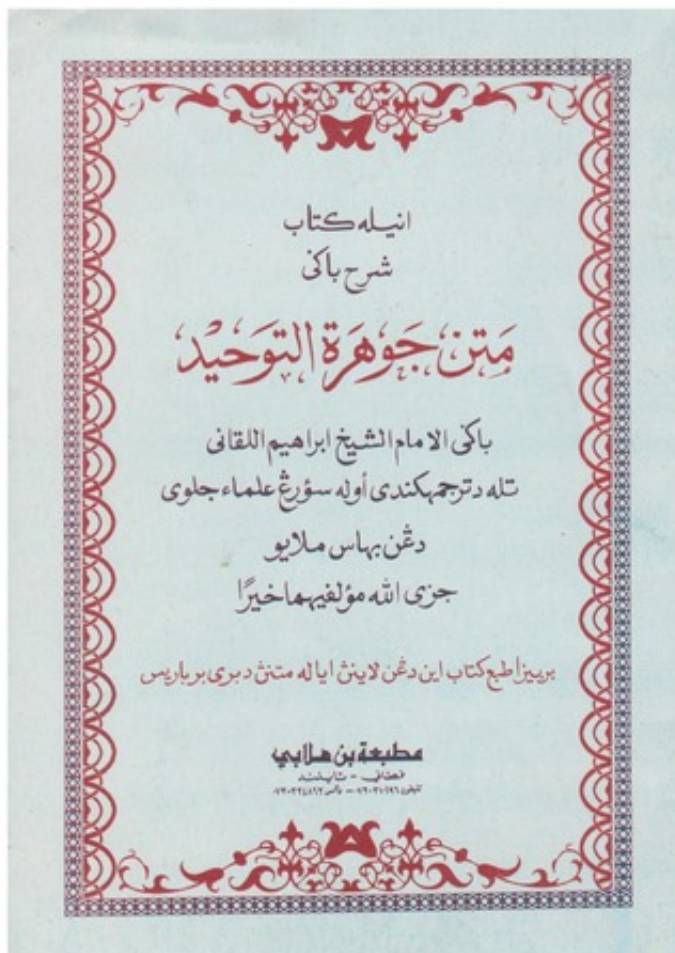 انيله كتاب
شرح باكى
مَتن جَوْهَرَة التوَحيْد
باكى الامام الشيخ ابراهيم اللقانى
تله دترجمهكندى أوله سؤرڠ علماء جاوى
دڠن بهاس ملايو
جزى الله مؤلفيهما خيرًا
بربيزا طبع كتاب اين دڠن لاينڽ اياله متنڽ دبرى برباريس
مطبعة بن هلابي
فطاني - تايلند
تليفون